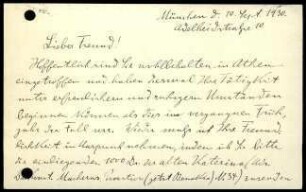 München d. 10. Sept. 1930.
Adelheidstraße 10
Lieber Freund!
Hoffentlich sind Sie wohlbehalten in Athen
eingetroffen und haben diesmal Ihre Tätigkeit
unter erfreulichern und ruhigern Umständen
beginnen können als dies im vergangenen Früh-
jahr der Fall war. Wieder muß ich Ihre Freund-
lichkeit in Anspruch nehmen, indem ich Sie bitte
die einliegenden 1000 Dr. der alten Katerina